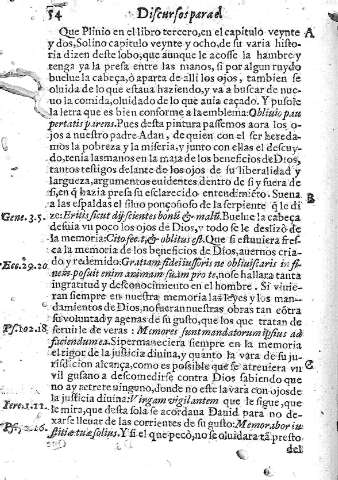 54 Discursos para el
Que Plinio en el libro tercero, en el capitulo veynte A
y dos, Solino capitulo veynte y ocho, de su varia histo
ria dizen deste lobo, que aunque le acosse la hambre y
tenga ya la presa entre las manos, si por algun ruydo
buelue la cabeça, ò aparta de alli los ojos, tambien se
oluida de lo que estaua haziendo, y va a buscar de nue-
uo la comida, oluidado de lo que auia caçado. Y pusole
la letra que es bien conforme a la emblema: Obliuio pau
pertatis parens. Pues desta pintura passemos aora los o-
jos a nuestro padre Adan, de quien con el ser hereda-
mos la pobreza y la miseria, y junto con ellas el descuy-
do, tenia las manos en la masa de los beneficios de Dios,
tantos testigos delante de los ojos de su liberalidad y
largueza, argumentos euidentes dentro de si y fuera de
si, en q̃ hazia presa su esclarecido entendimiẽto. Suena B
a las espaldas el siluo ponçoñoso de la serpiente q̃ le di-
Gene. 3. 5. ze: Eritis sicut dij scientes bonũ & malũ. Buelue la cabeça
desuia vn poco los ojos de Dios, y todo se le deslizò de
la memoria: Cito fecerũt, & obliti est. Que si estuuiera fres-
ca la memoria de los beneficios de Dios, auernos cria-
Ecc. 29. 20. do y redemido: Gratiam fideiussoris ne obliuiscaris is e-
nim posuit enim animam suam pro te, no se hallara tanta
ingratitud y desconocimiento en el hombre. Si viuie-
ran siempre en nuestra memoria las leyes y los man-
damientos de Dios, no fueran nuestras obras tan cõtra
su voluntad y agenas de su gusto, que los que tratan de
Ps. 102. 18. seruirle de veras: Memores sunt mandatorum ipsius ad
faciendum ea. Si permaneciera siempre en la memoria
el rigor de la justicia diuina, y quanto la vara de su ju- C
risdicion alcança, como es possible que se atreuiera vn
vil gusano a descomedirse contra Dios sabiendo que
no ay retrete ninguno, donde no este la vara con ojos de
Iere. 1. 11. la justicia diuina: Virgam vigilantem que le sigue, que
le mira, que desta sola se acordaua Dauid para no de-
xarse lleuar de las corrientes de su gusto: Memorabor iu-
Ps. 70. 16. stitiæ tuæ solius. Y si el que pecò, no se oluidara tã presto
del